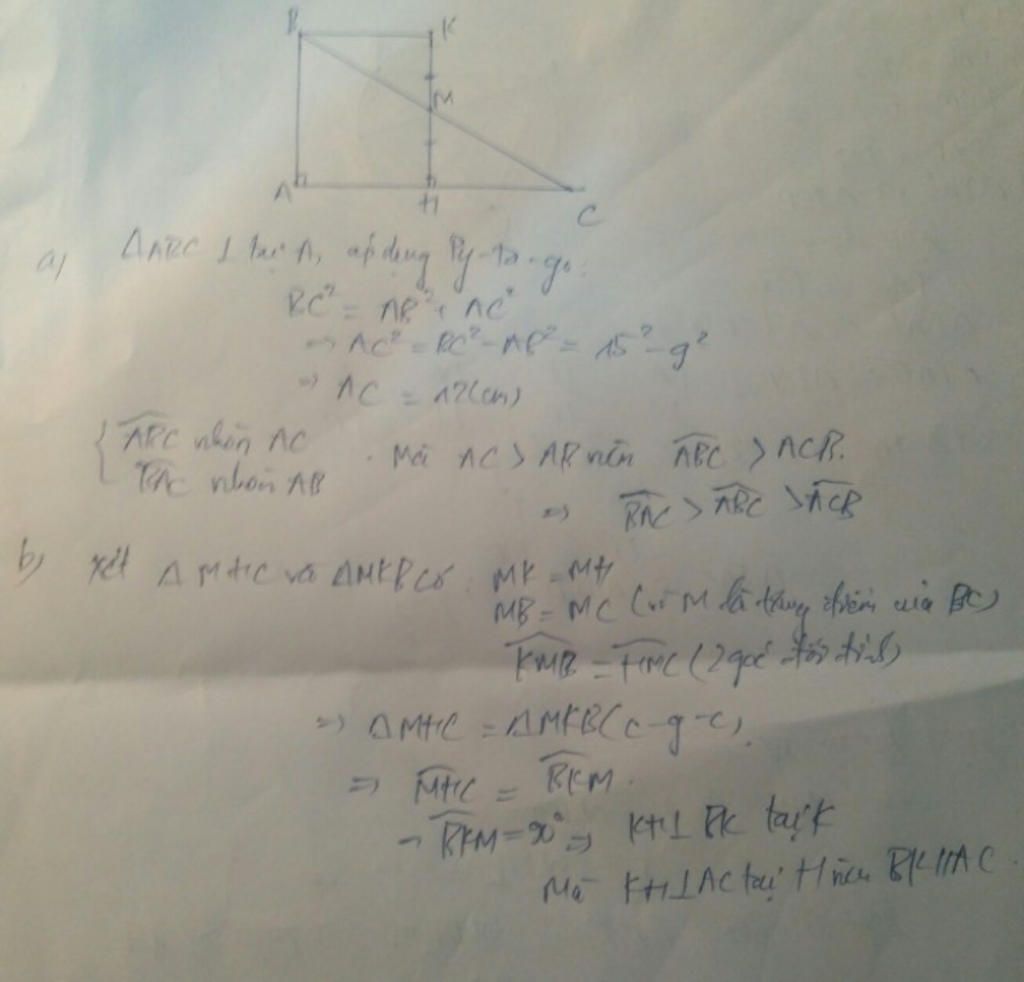 B K
M
A H C
a) ΔABC ⊥ tại A, áp dụng Py-ta-go:
BC² = AB² + AC²
⇒ AC² = BC² - AB² = 15² - 9²
⇒ AC = 12(cm)
{ ABC nhìn AC . Mà AC > AB nên ABC > ACB.
BAC nhìn AB
⇒ BAC > ABC > ACB
b) Xét ΔMHC và ΔMKB có: MK = MH
MB = MC (vì M là trung điểm của BC)
KMB = HMC (2 góc đối đỉnh)
⇒ ΔMHC = ΔMKB (c-g-c).
⇒ MHC = BKM.
→ BKM = 90° ⇒ KH ⊥ BK tại K
Mà KH ⊥ AC tại H nên BK // AC.